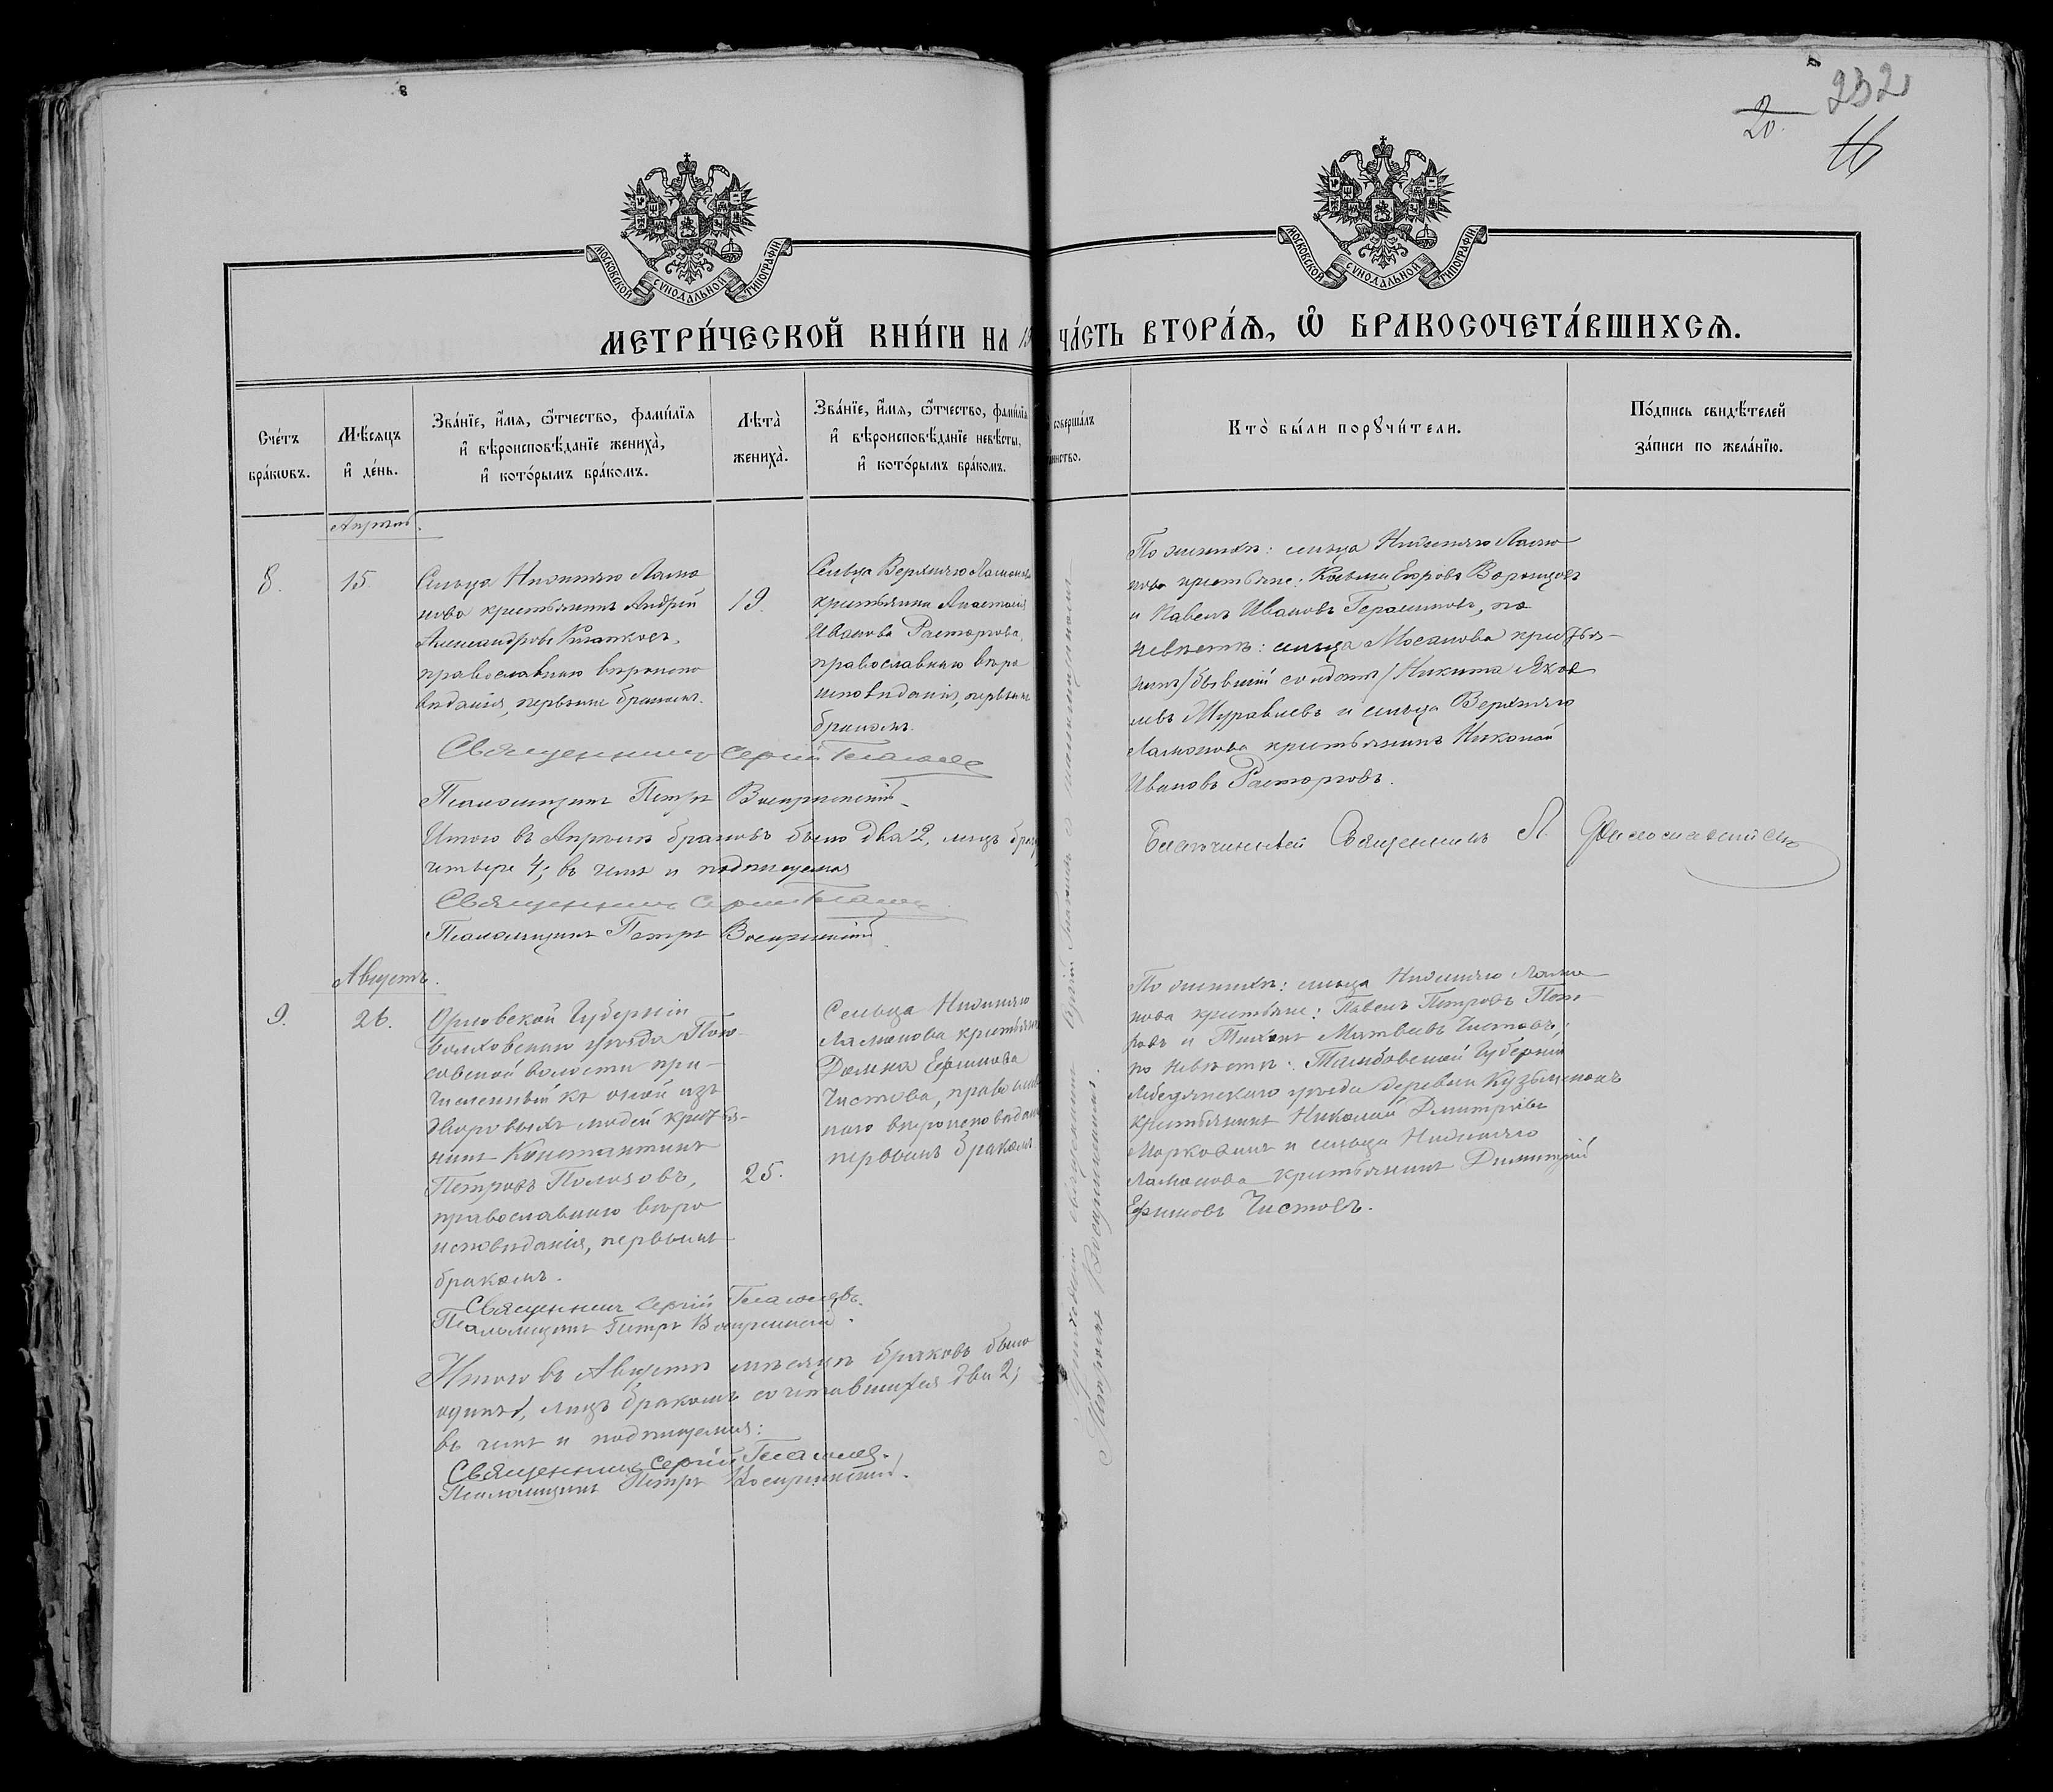 232
20.
МОСКОВСКОЙ СѴНОДАЛЬНОЙ ТИПОГРАФІИ
МОСКОВСКОЙ СѴНОДАЛЬНОЙ ТИПОГРАФІИ
МЕТРИ́ЧЕСКОЙ КНИ́ГИ НА 19
ЧА́СТЬ ВТОРА́Ѧ, Ѽ БРАКОСОЧЕТА́ВШИХСѦ.
Сче́тъ бра́кѡвъ.
Мѣ́сѧцъ и҆ де́нь.
Зва́нїе, и҆́мѧ, ѻ҆́тчество, фамѵ́лїѧ
и҆ вѣроисповѣ́данїе жениха̀,
и҆ кото́рымъ бра́комъ.
Лѣта̀ жениха̀.
Зва́нїе, и҆́мѧ, ѻ҆́тчество, фамѵ́лїѧ
и҆ вѣроисповѣ́данїе невѣ́сты,
и҆ кото́рымъ бра́комъ.
совершалъ
Кто̀ бы́ли порꙋчи́тели.
По́дпись свидѣ́телей
за́писи по жела́нїю.
Апрѣль.
8.
15.
Сельца Нижняго Ламо
нова крестьянинъ Андрей
Александровъ
православнаго вѣроиспо
вѣданія, первымъ бракомъ.
19.
Сельца Верхняго Ламонова
крестьянка Анастасія
Иванова Расторгова,
православнаго вѣро
исповѣданія, первымъ
бракомъ.
По женихѣ: сельца Нижняго Ламо
нова крестьяне: Косьма Егоровъ Воронцовъ
и Павелъ Ивановъ Герасимовъ, по
невѣстѣ: сельца Мосанова крестья-
нинъ /бывшій солдатъ/ Никита Яков
левъ Муравлевъ и сельца Верхняго
Ламонова крестьянинъ Николай
Ивановъ Расторговъ.
Священникъ Сергій Глаголевъ
Псаломщикъ Петръ
Итого въ Апрѣлѣ браковъ было два 2, лицъ
четыре 4; въ чемъ и подписуемся
Священникъ Сергій Глаголевъ
Псаломщикъ Петръ
Благочинный Священникъ Л.
Августъ.
9.
26.
Орловской Губерніи
Болховскаго уѣзда
волости при-
численный къ оной изъ
дворовыхъ людей крестья-
нинъ Константинъ
Петровъ Полозовъ,
православнаго вѣро
исповѣданія, первымъ
бракомъ.
25.
Сельца Нижняго
Ламонова крестьянка
Домна Ефимова
Чистова, православ
наго вѣроисповѣданія
первымъ бракомъ
По женихѣ: сельца Нижняго Ламо
нова крестьяне: Павелъ Петровъ Пет
ровъ и Тихонъ Матвѣевъ Чистовъ;
по невѣстѣ: Тамбовской Губерніи
Лебедянскаго уѣзда деревни
крестьянинъ Николай Дмитріевъ
Морковинъ и сельца Нижняго
Ламонова крестьянинъ Димитрій
Ефимовъ Чистовъ.
Священникъ Сергій Глаголевъ.
Псаломщикъ Петръ
Итого въ Августѣ мѣсяцѣ браковъ было
одинъ 1, лицъ бракомъ сочетавшихся два 2;
въ чемъ и подписуемся:
Священникъ Сергій Глаголев.
Псаломщикъ Петръ